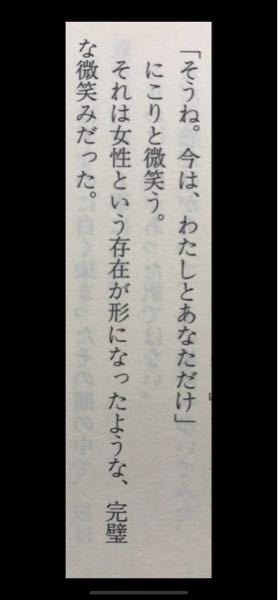 「そうね。今は、わたしとあなただけ」
にこりと微笑う。
それは女性という存在が形になったような、完璧
な微笑みだった。